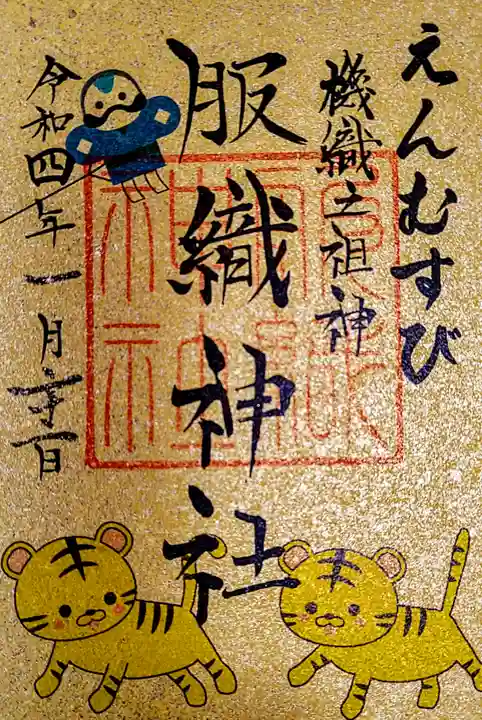 えんむすび
機織之祖神
服織神社
令和四年一月吉日